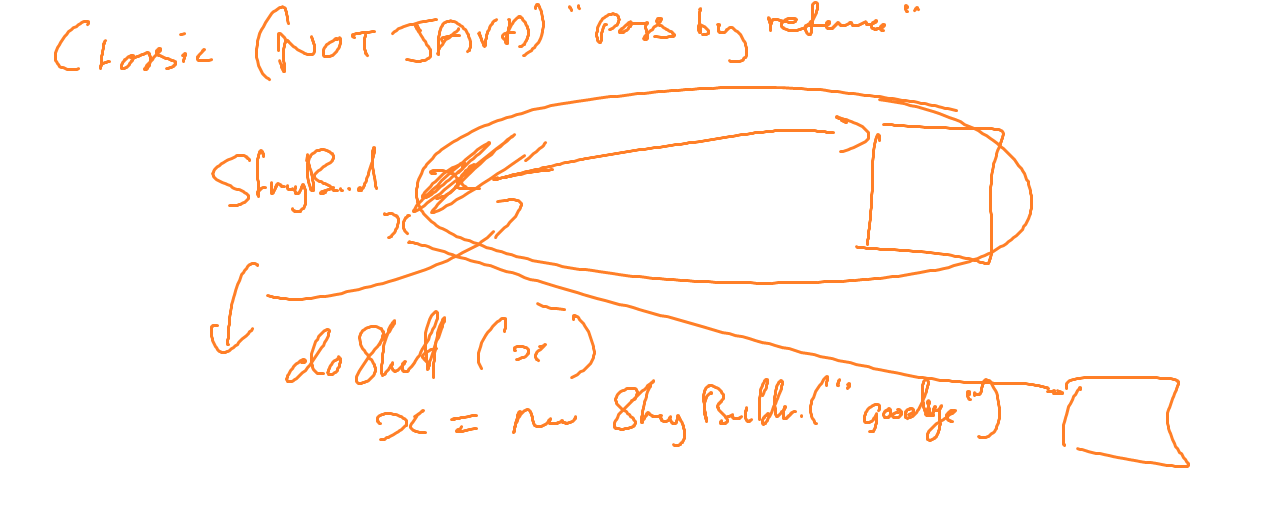 Classic (NOT JAVA) "pass by reference"
StringBuild
x
doStuff (x)
x = new StringBuilder("goodbye")